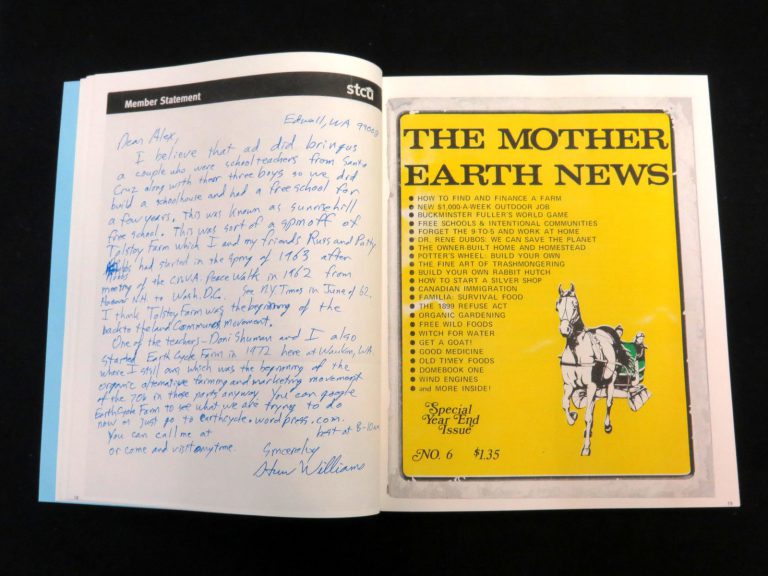 Member Statement
stca
Edwall, WA 99008
Dear Alex,
I believe that ad did bring us
a couple who were school teachers from Santa
Cruz along with their three boys so we did
build a schoolhouse and had a free school for
a few years. This was known as sunrise hill
free school. This was sort of a spin off of
Tolstoy Farm which I and my friends Russ and Patty
had started in the spring of 1963 after
meeting of the CNVA. Peace Walk in 1962 from
Hanover N.H. to Wash. D.C. See N.Y. Times in June of 62.
I think Tolstoy Farm was the beginning of the
back to the land Commune movement.
One of the teachers - Doni Shuman and I also
started Earth Cycle Farm in 1972 here at Waukon, WA.
where I still am, which was the beginning of the
organic alternative farming and marketing movement
of the 70s in these parts anyway. You can google
EarthCycle Farm to see what we are trying to do
now or just go to earthcycle.wordpress.com.
You can call me at best at 8-10
or come and visit anytime.
Sincerely
Williams
18
THE MOTHER
EARTH NEWS
• HOW TO FIND AND FINANCE A FARM
• NEW $1,000-A-WEEK OUTDOOR JOB
• BUCKMINSTER FULLER'S WORLD GAME
• FREE SCHOOLS & INTENTIONAL COMMUNITIES
• FORGET THE 9-TO-5 AND WORK AT HOME
• DR. RENE DUBOS: WE CAN SAVE THE PLANET
• THE OWNER-BUILT HOME AND HOMESTEAD
• POTTER'S WHEEL: BUILD YOUR OWN
• THE FINE ART OF TRASHMONGERING
• BUILD YOUR OWN RABBIT HUTCH
• HOW TO START A SILVER SHOP
• CANADIAN IMMIGRATION
• FAMILIA: SURVIVAL FOOD
• THE 1899 REFUSE ACT
• ORGANIC GARDENING
• FREE WILD FOODS
• WITCH FOR WATER
• GET A GOAT!
• GOOD MEDICINE
• OLD TIMEY FOODS
• DOMEBOOK ONE
• WIND ENGINES
• and MORE INSIDE!
Special
Year End
Issue
NO. 6 $1.35
19